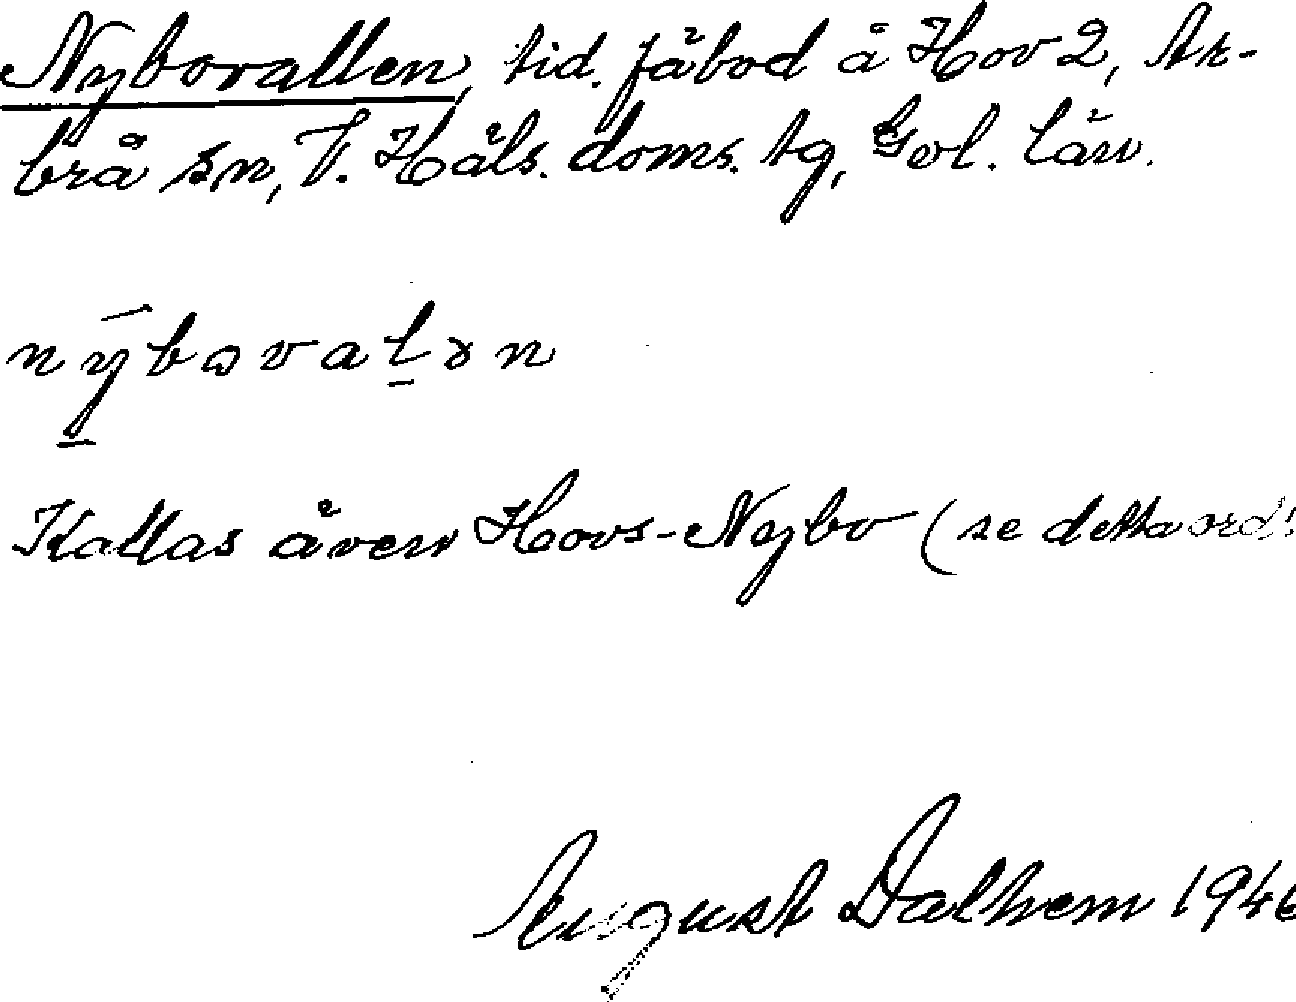 Nybovallen, tid. fäbod å Hov 2, Ar-
brå sn, V. Häls. doms. tg, Gvl. län.
nýbovaḷɤn
Kallas även Hovs-Nybo (se detta ord!
August Dalhem 1946